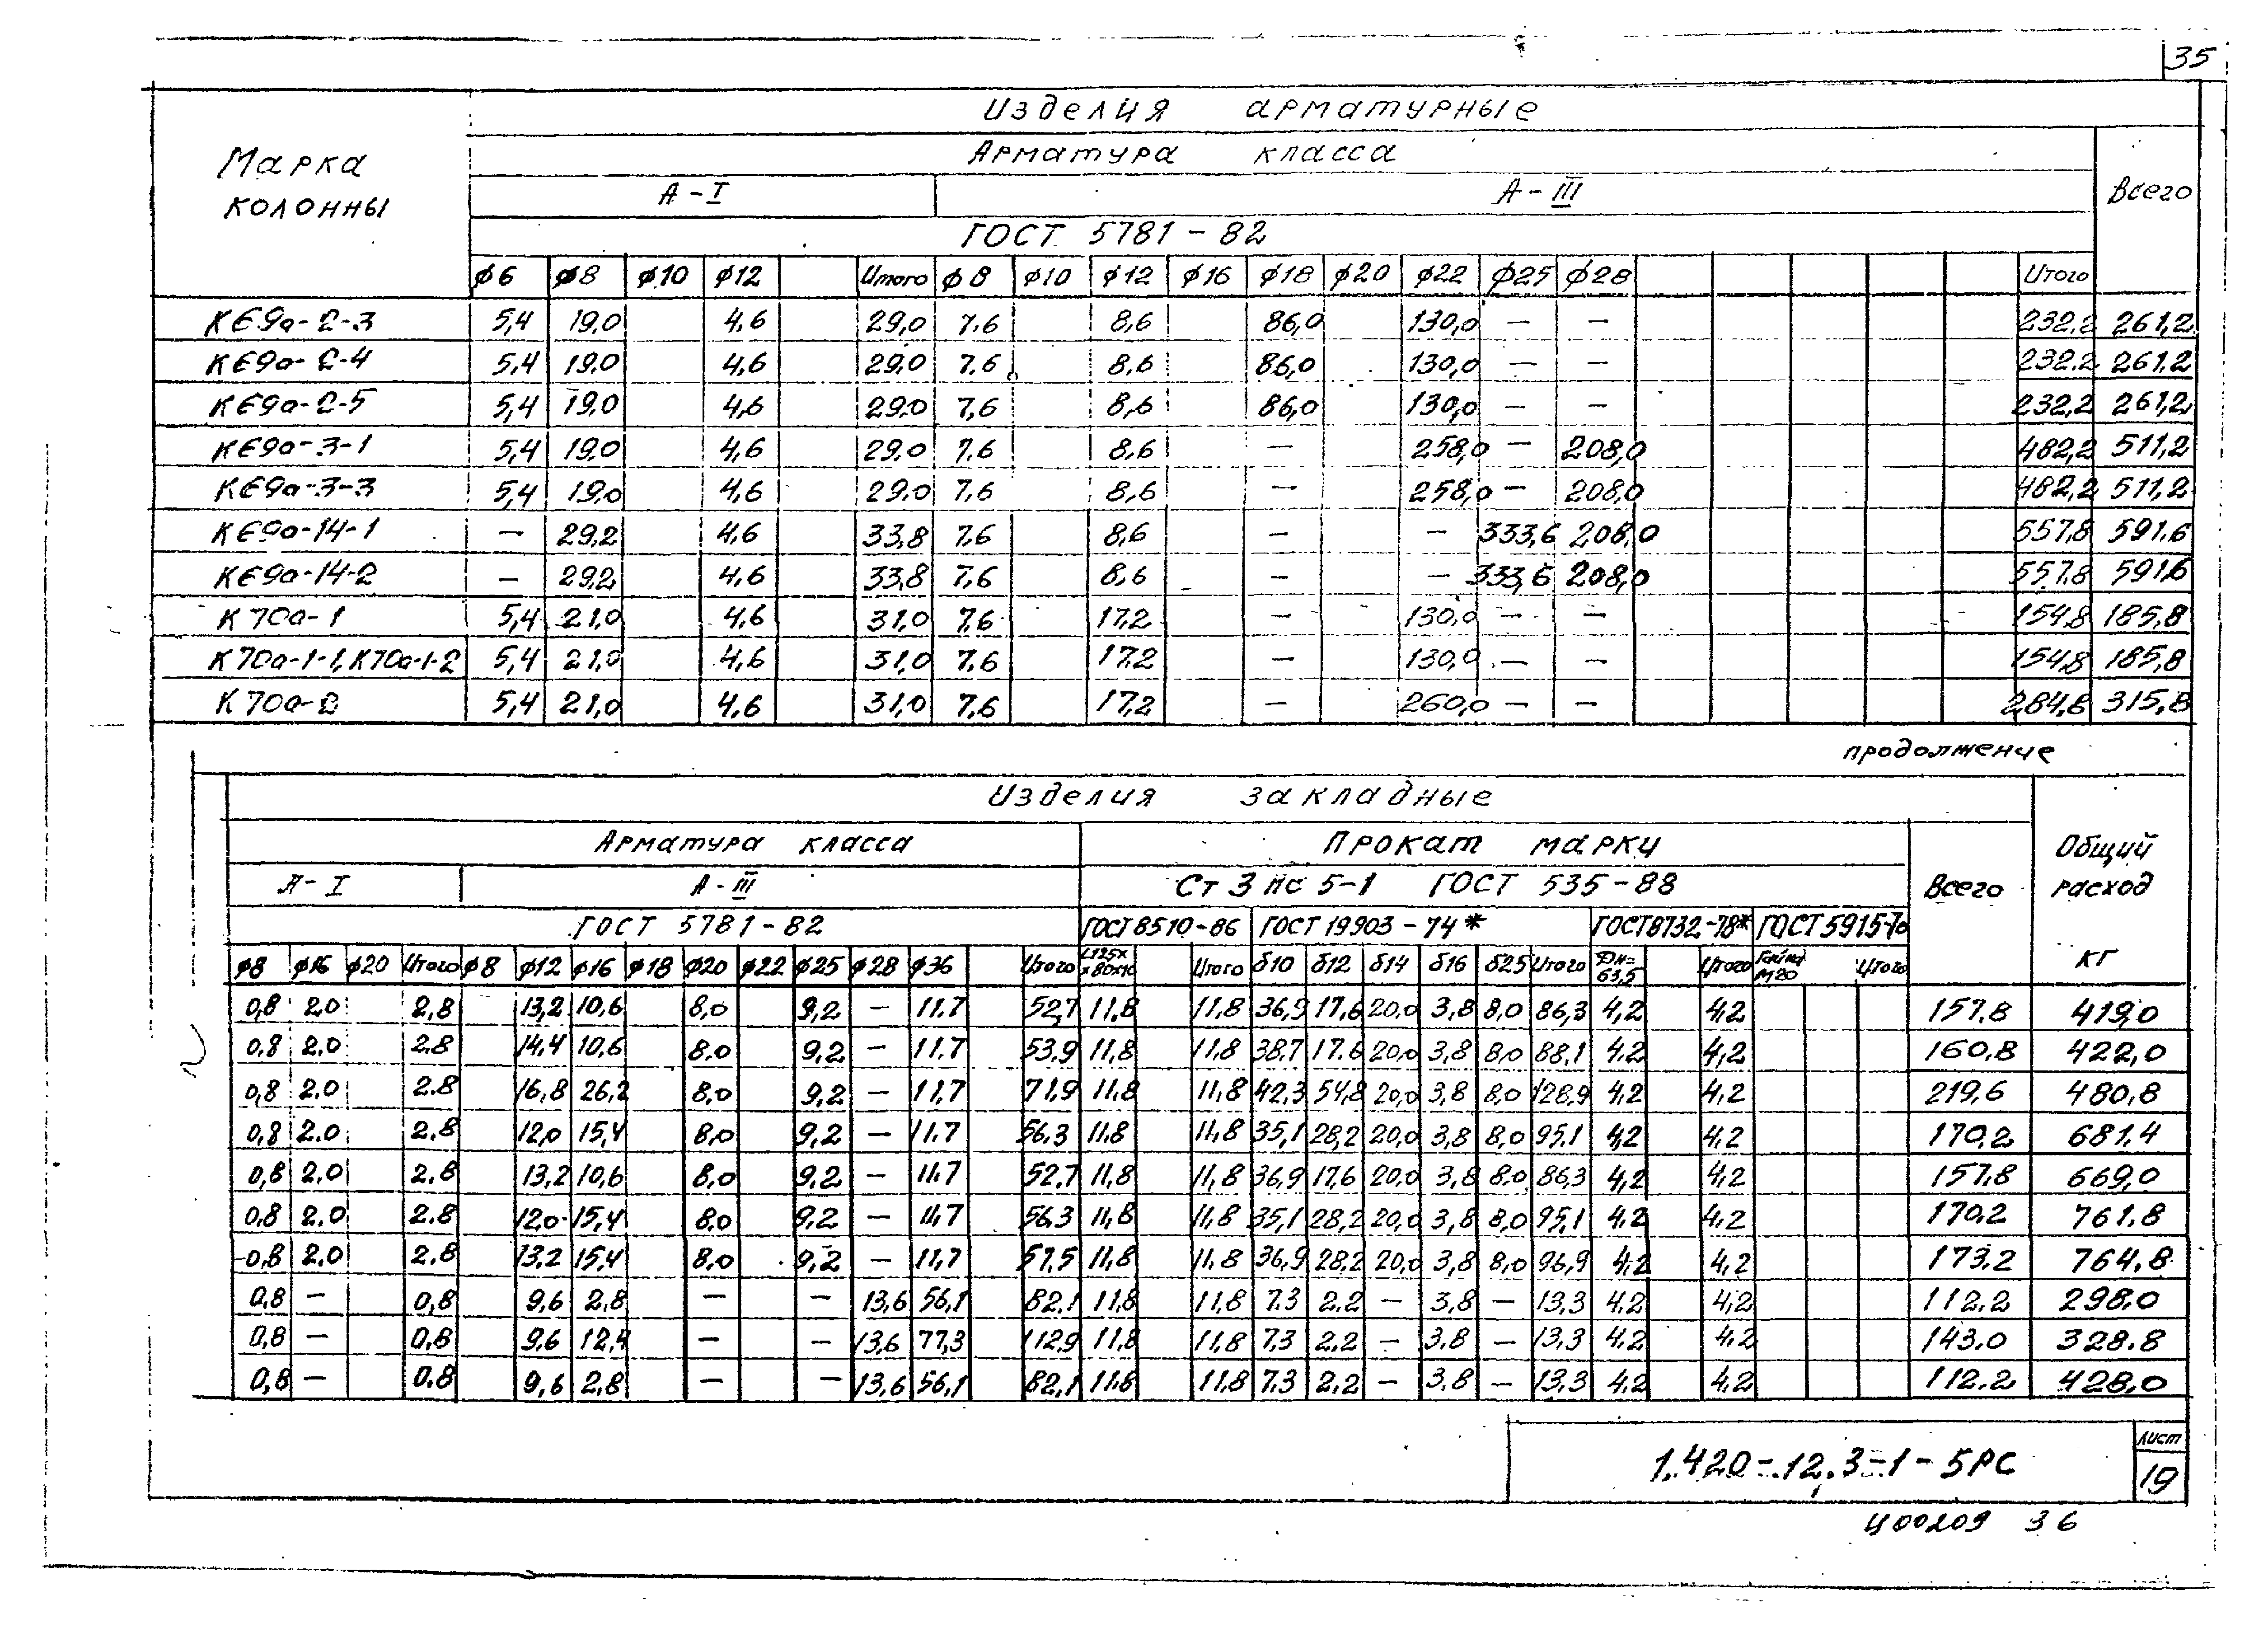 35
Изделия арматурные
Марка колонны
Арматура класса
Всего
А-I А-III
ГОСТ 5781-82
ф6 ф8 ф10 ф12 Итого ф8 ф10 ф12 ф16 ф18 ф20 ф22 ф25 ф28 Итого
К69а-2-3 5,4 19,0 4,6 29,0 7,6 8,6 86,0 130,0 — — 232,2 261,2
К69а-2-4 5,4 19,0 4,6 29,0 7,6 8,6 86,0 130,0 — — 232,2 261,2
К69а-2-5 5,4 19,0 4,6 29,0 7,6 8,6 86,0 130,0 — — 232,2 261,2
К69а-3-1 5,4 19,0 4,6 29,0 7,6 8,6 — 258,0 — 208,0 482,2 511,2
К69а-3-3 5,4 19,0 4,6 29,0 7,6 8,6 — 258,0 — 208,0 482,2 511,2
К69а-14-1 — 29,2 4,6 33,8 7,6 8,6 — — 333,6 208,0 557,8 591,6
К69а-14-2 — 29,2 4,6 33,8 7,6 8,6 — — 333,6 208,0 557,8 591,6
К70а-1 5,4 21,0 4,6 31,0 7,6 17,2 — 130,0 — — 154,8 185,8
К70а-1-1, К70а-1-2 5,4 21,0 4,6 31,0 7,6 17,2 — 130,0 — — 154,8 185,8
К70а-2 5,4 21,0 4,6 31,0 7,6 17,2 — 260,0 — — 284,8 315,8
продолжение
Изделия закладные
Арматура класса Прокат марки
Всего
Общий расход кг
А-I А-III Ст 3 пс 5-1 ГОСТ 535-88
ГОСТ 5781-82 ГОСТ 8510-86 ГОСТ 19903-74* ГОСТ 8732-78* ГОСТ 5915-70
ф8 ф16 ф20 Итого ф8 ф12 ф16 ф18 ф20 ф22 ф25 ф28 ф36 Итого L125х х80х10 Итого δ10 δ12 δ14 δ16 δ25 Итого Дн= 63,5 Итого Гайка М20 Итого
0,8 2.0 2,8 13,2 10,6 8,0 9,2 — 11.7 52,7 11.8 11,8 36,9 17,6 20,0 3,8 8,0 86,3 4,2 4,2 157.8 419,0
0,8 2.0 2.8 14,4 10,6 8.0 9,2 — 11.7 53,9 11,8 11,8 38,7 17.6 20,0 3,8 8,0 88,1 4,2 4,2 160,8 422,0
0,8 2.0 2.8 16,8 26,2 8.0 9,2 — 11,7 71,9 11,8 11,8 42,3 54,8 20,0 3,8 8,0 128,9 4,2 4,2 219,6 480,8
0,8 2.0 2.8 12,0 15,4 8,0 9,2 — 11.7 56,3 11,8 11,8 35,1 28,2 20,0 3,8 8,0 95,1 4,2 4,2 170,2 681,4
0,8 2,0 2.8 13,2 10,6 8,0 9,2 — 11.7 52,7 11,8 11,8 36,9 17,6 20,0 3,8 8,0 86,3 4,2 4,2 157,8 669,0
0,8 2,0 2.8 12,0 15,4 8,0 9,2 — 11,7 56,3 11,8 11,8 35,1 28,2 20,0 3,8 8,0 95,1 4,2 4,2 170,2 761,8
0,8 2.0 2.8 13,2 15,4 8,0 9,2 — 11,7 57,5 11,8 11,8 36,9 28,2 20,0 3,8 8,0 96,9 4,2 4,2 173,2 764,8
0,8 — 0,8 9,6 2,8 — — 13,6 56,1 82,1 11,8 11,8 7.3 2.2 — 3,8 — 13,3 4,2 4,2 112.2 298,0
0,8 — 0,8 9,6 12,4 — — 13,6 77,3 112,9 11,8 11,8 7,3 2,2 — 3,8 — 13,3 4,2 4,2 143.0 328.8
0,8 — 0.8 9,6 2,8 — — 13,6 56,1 82,1 11.8 11.8 7.3 2,2 — 3,8 — 13,3 4,2 4,2 112.2 428,0
1.420-12.3-1-5РС
Лист
19
Ц00209 36